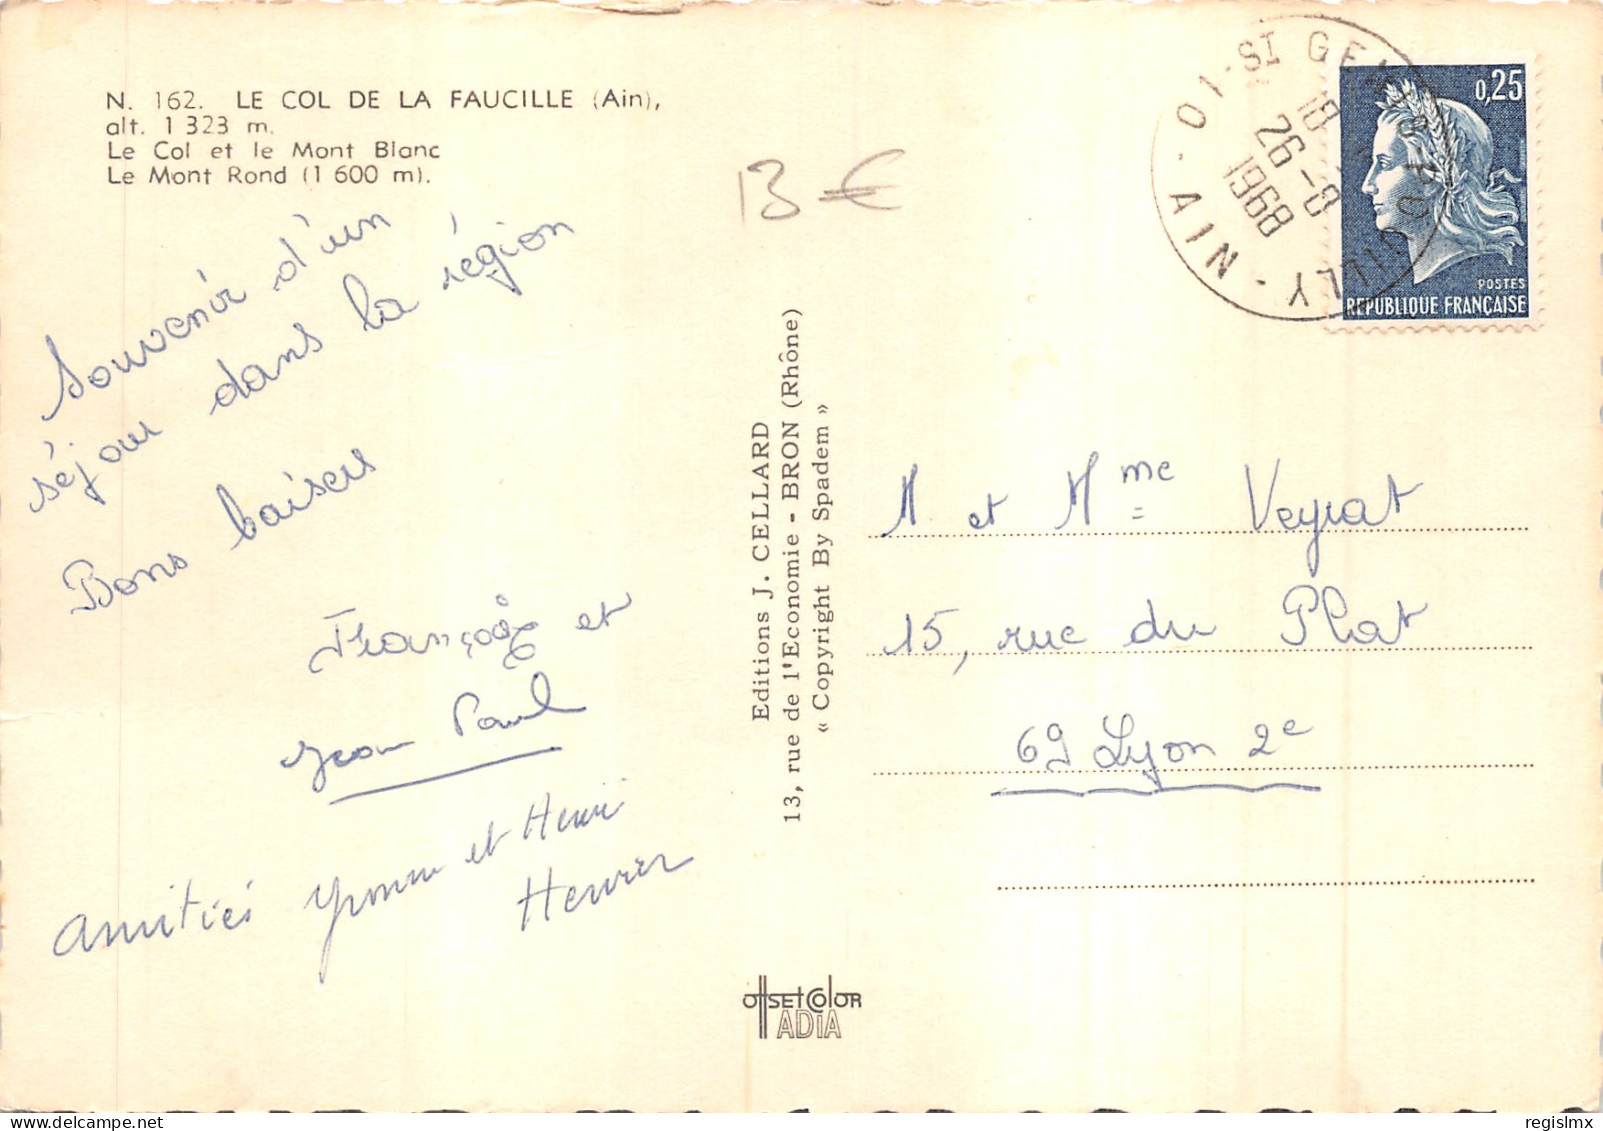 N. 162. LE COL DE LA FAUCILLE (Ain),
alt. 1 323 m.
Le Col et le Mont Blanc
Le Mont Rond (1 600 m).
Souvenir d'un
séjour dans la région
Bons baisers
Françoise et
Jean Paul
amitiés Yvonne et Henri
Henrier
13 €
Editions J. CELLARD
13, rue de l'Economie - BRON (Rhône)
« Copyright By Spadem »
OffSETCOlOR
ADIA
01 - ST GENIS-POUILLY - AIN -
18
26-8
1968
0,25
POSTES
REPUBLIQUE FRANÇAISE
M et Mme Veyrat
15, rue du Plat
69 Lyon 2e
delcampe.net
regislmx